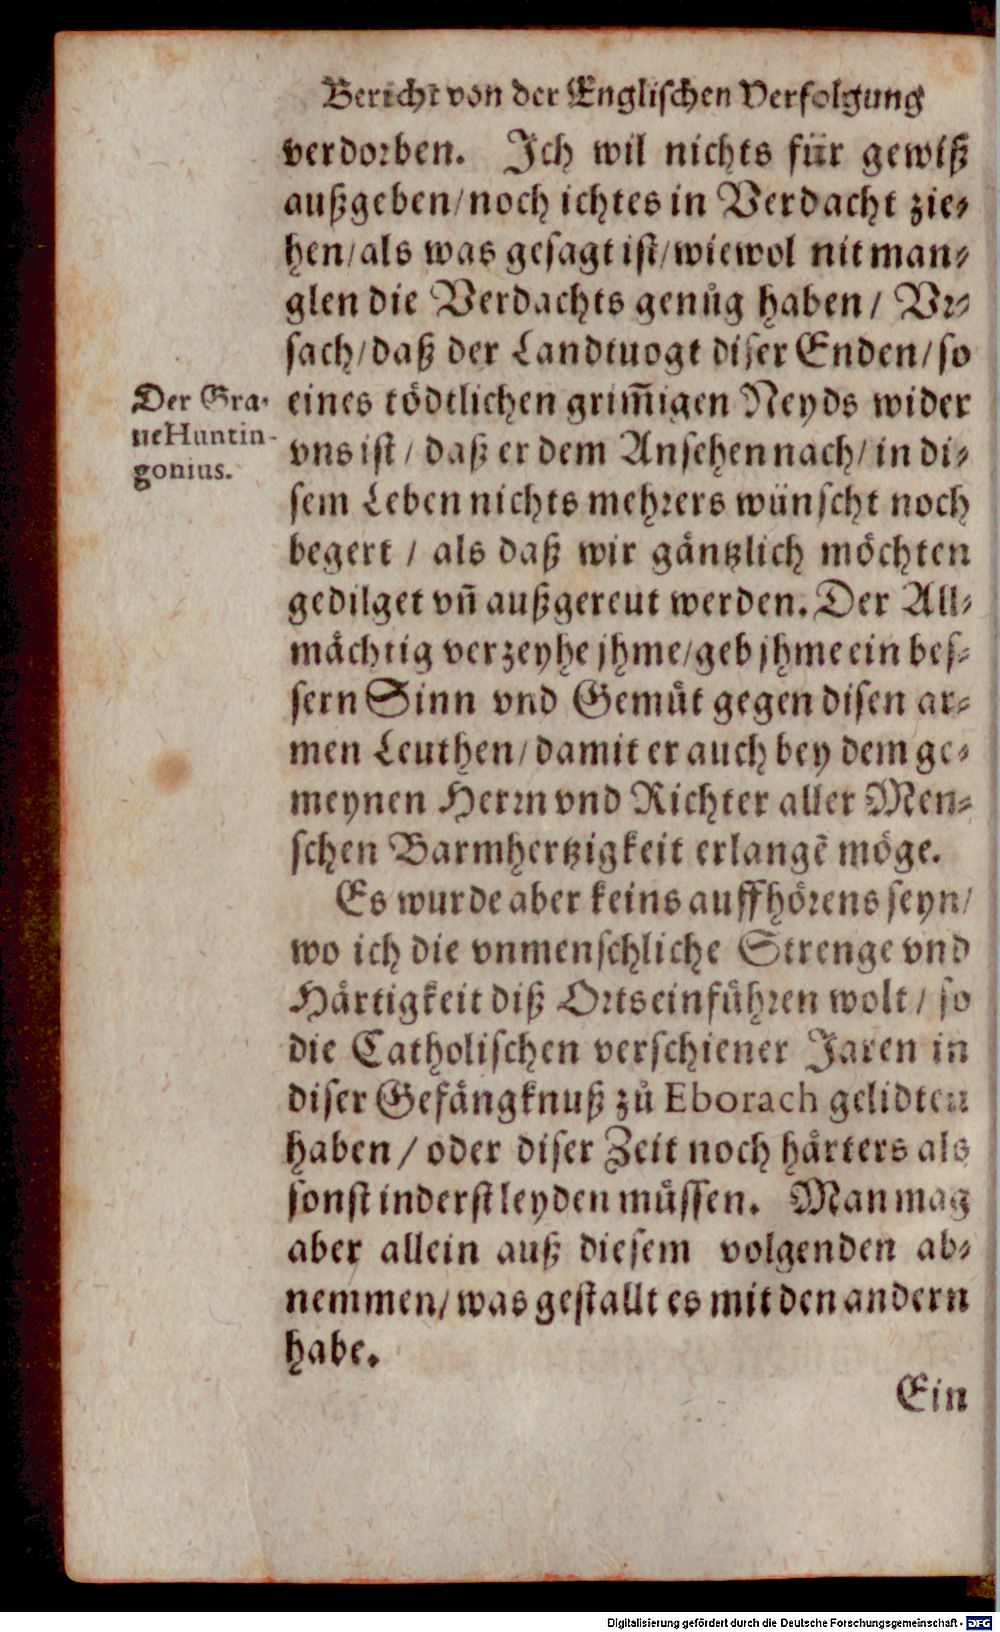 Bericht von der Englischen Verfolgung
verdorben. Ich wil nichts für gewiß
außgeben/noch ichtes in Verdacht zie-
hen/als was gesagt ist/wiewol nit man-
glen die Verdachts genůg haben/ Vr-
sach/daß der Landtuogt diser Enden/so
Der Gra-
ueHuntin-
gonius.
eines tödtlichen grim̃igen Neyds wider
vns ist/ daß er dem Ansehen nach/ in di-
sem Leben nichts mehrers wünscht noch
begert / als daß wir gäntzlich möchten
gedilget vñ außgereut werden. Der All-
mächtig verzeyhe jhme/geb jhme ein bes-
sern Sinn vnd Gemüt gegen disen ar-
men Leuthen/damit er auch bey dem ge-
meynen Herrn vnd Richter aller Men-
schen Barmhertzigkeit erlangẽ möge.
Es wurde aber keins auffhörens seyn/
wo ich die vnmenschliche Strenge vnd
Härtigkeit diß Orts einführen wolt/ so
die Catholischen verschiener Jaren in
diser Gefängknuß zů Eborach gelidten
haben / oder diser Zeit noch härters als
sonst inderst leyden müssen. Man mag
aber allein auß diesem volgenden ab-
nemmen/was gestallt es mit den andern
habe.
Ein
Digitalisierung gefördert durch die Deutsche Forschungsgemeinschaft - DFG